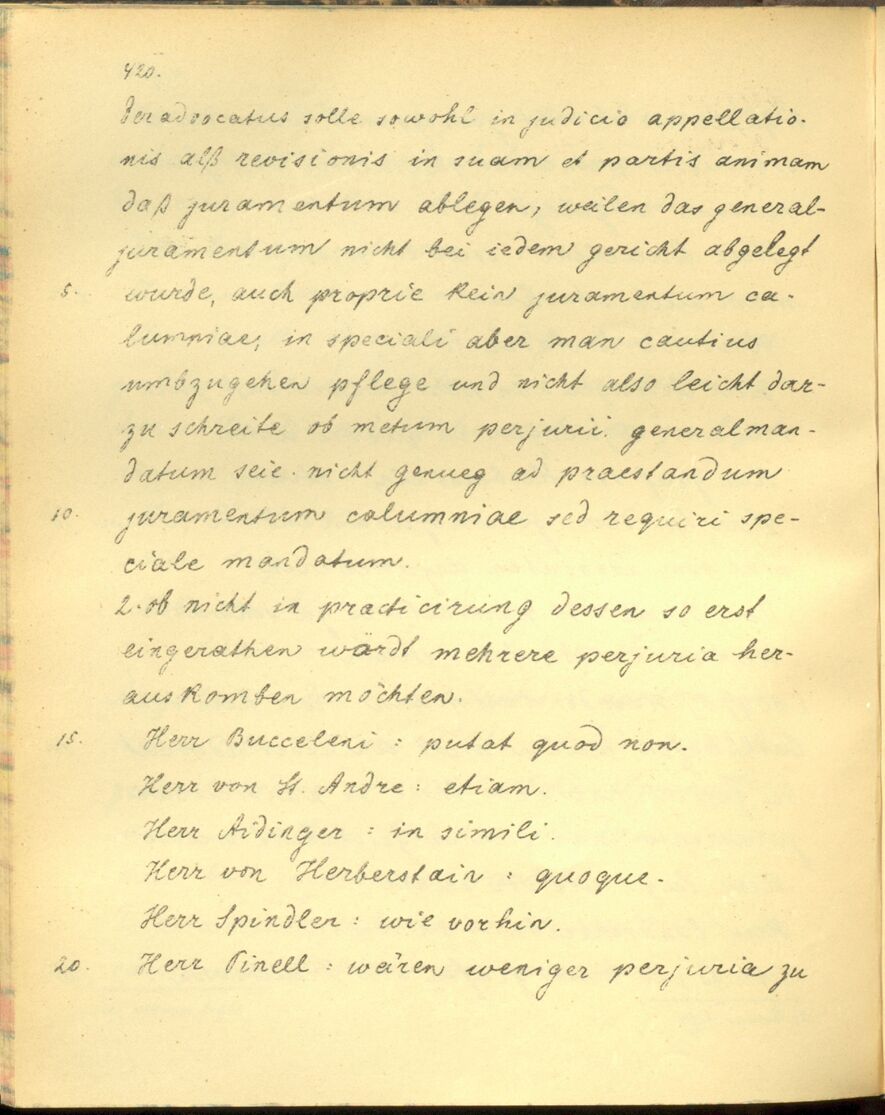 420.
der advocatus solle sowohl in judicio appellatio-
nis alß revisionis in suam et partis animam
daß juramentum ablegen, weilen das general-
juramentum nicht bei iedem gericht abgelegt
5. wurde, auch proprie kein juramentum ca-
lumniae, in speciali aber man cautius
umbzugehen pflege und nicht also leicht dar-
zu schreite ob metum perjurii. generalman-
datum seie nicht genueg ad praestandum
10. juramentum calumniae sed requiri spe-
ciale mandatum.
2. ob nicht in practicirung dessen so erst
eingerathen wärdt mehrere perjuria her-
auskomben möchten.
15. Herr Bucceleni : putat quod non.
Herr von St. Andre : etiam.
Herr Aidinger : in simili.
Herr von Herberstain : quoque.
Herr Spindler : wie vorhin.
20. Herr Pinell : wären weniger perjuria zu